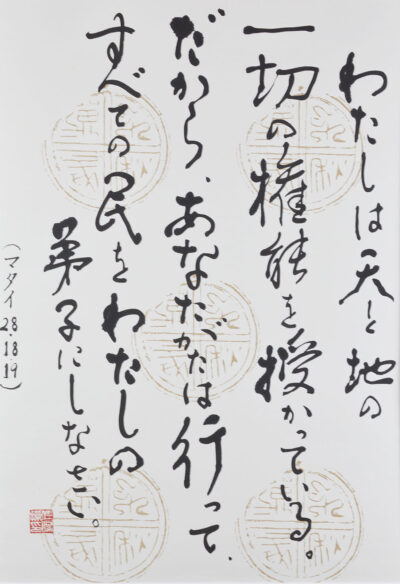 わたしは天と地の
一切の権能を授かっている。
だから、あなたがたは行って、
すべての民をわたしの
弟子にしなさい。
(マタイ28.18.19)